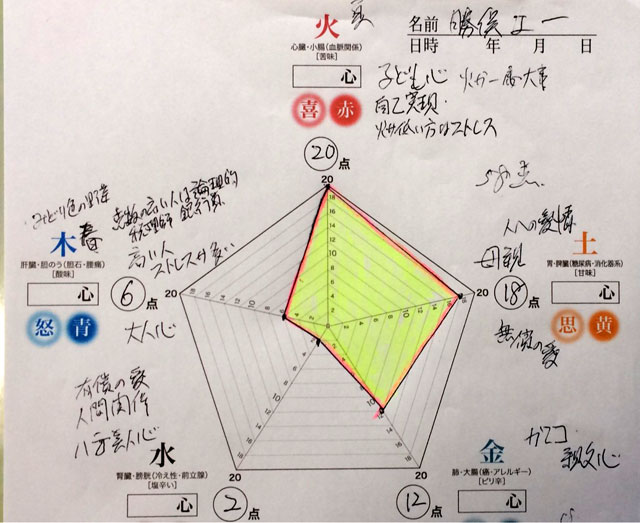 夏
火
心臓・小腸(血脈関係)
[苦味]
心
喜 赤
20点
名前 勝俣 正一
日時 年 月 日
子ども心 火が一番大事
自己実現
火が低い方はストレス
みどり色の野菜
春
木
肝臓・胆のう(胆石・腰痛)
[酸味]
心
怒 青
6点
点数の高い人は論理的
税理士 銀行員
高い人
ストレスが多い
大人心
人への愛情
母親
土
胃・脾臓(糖尿病・消化器系)
[甘味]
18点
心
思 黄
無償の愛
有償の愛
人間関係
八方美人心
水
腎臓・膀胱(冷え性・前立腺)
[塩辛い]
心
2点
金
肺・大腸(癌・アレルギー)
[ピリ辛]
心
12点
ガンコ
親父心
20
20
20
20
20